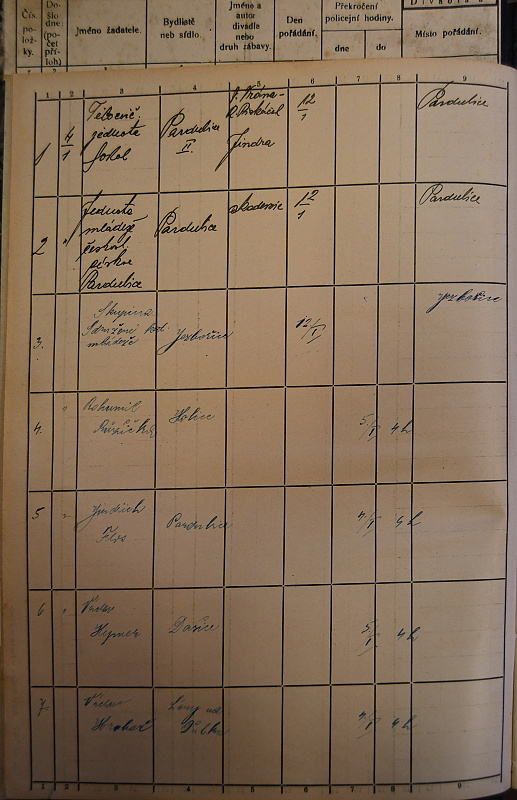 Čís. po- ložky.
Do- šlo dne: (po- čet pří- loh)
Jméno žadatele.
Bydliště neb sídlo.
Jméno a autor divadla nebo druh zábavy.
Den pořádání.
Překročení policejní hodiny.
dne do
Místo pořádání.
1 2 3 4 5 6 7 8 9
1
4/1
Tělocvič.
jednota
Sokol
Pardubice
II.
Jindra
12/1
Pardubice
2
"
Jednota
mládeže
českobr.
církve
Pardubice
Pardubice
akademie
12/1
Pardubice
3.
Skupina
Sdružení kat.
mládeže
Jezbořice
12/1
Jezbořice
4.
"
Bohumil
Růžička
Holice
5/1
4 h
5
"
Jindřich
Pardubice
4 h
6
"
Václav
Hýmer
Dašice
5/1
4 h
7
Václav
4 h
1 2 3 4 5 6 7 8 9